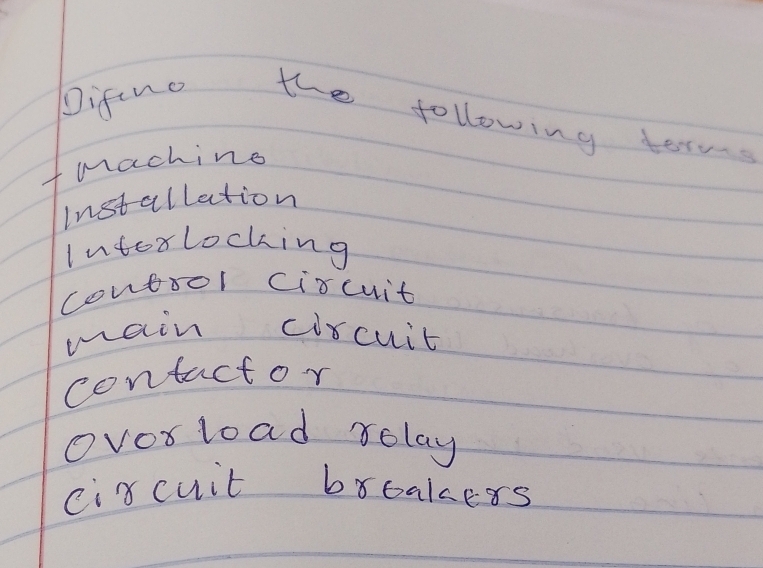 Difine the following terms
- Machine
Installation
Interlocking
control circuit
main circuit
contactor
overload relay
circuit breakers